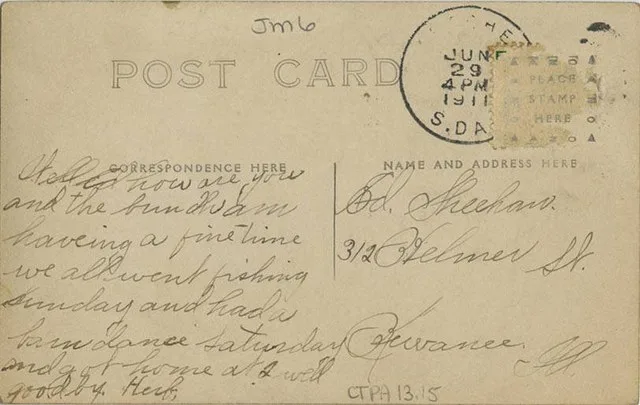 JM6
POST CARD
JUNE
29
4 PM
1911
S. DA
PLACE
STAMP
HERE
CORRESPONDENCE HERE
Hello how are you
and the bunch am
haveing a fine time
we all went fishing
sunday and had a
barn dance saturday
and got home at 2 well
goodby. Herb,
NAME AND ADDRESS HERE
Ed. Sheehan.
312 Helmer St.
Kewanee
Ill.
CTPA 13.15